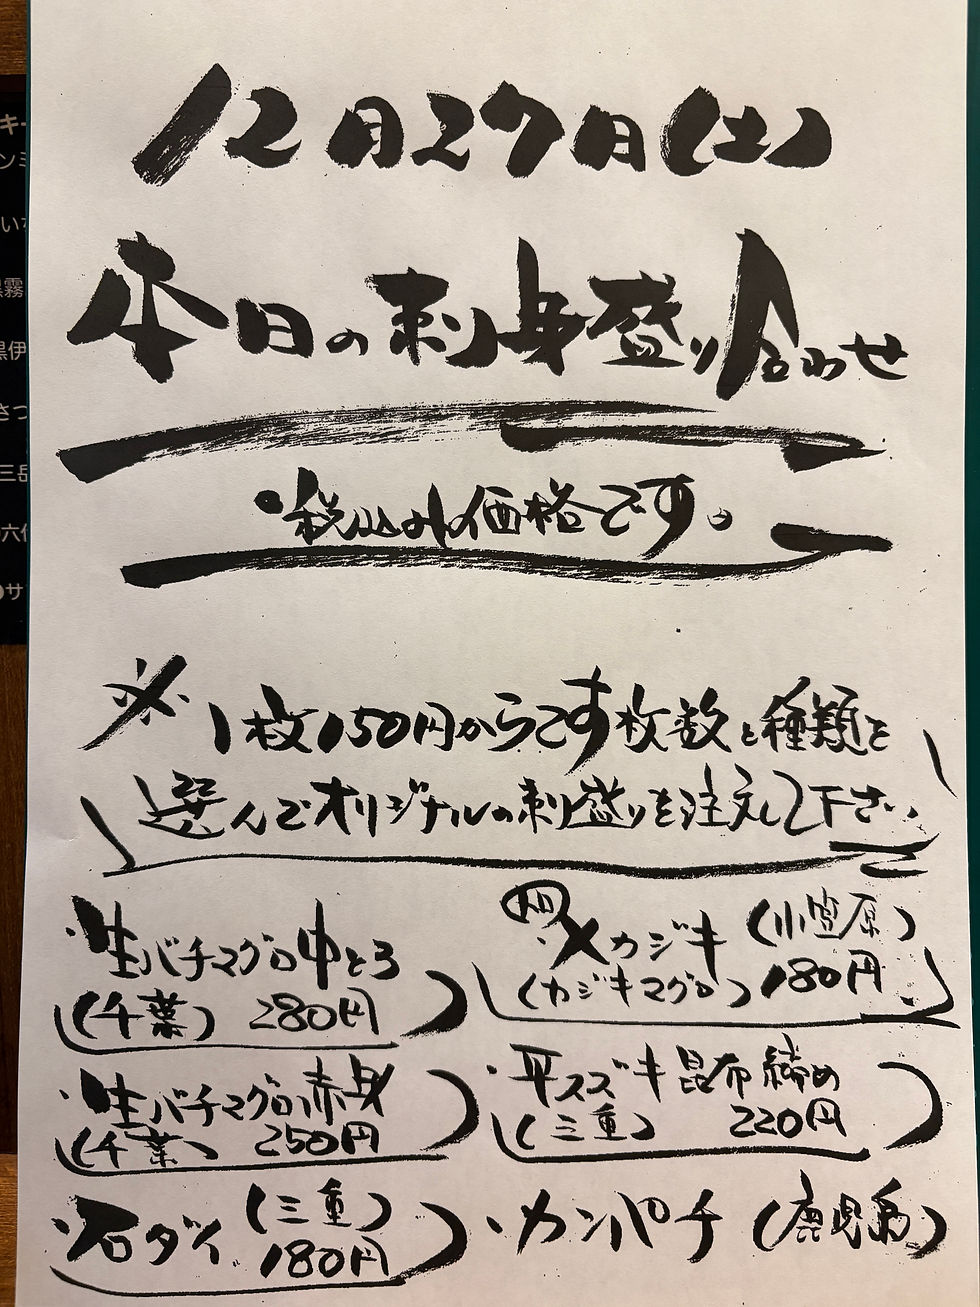 12月27日(土)
本日の刺身盛り合わせ
・税込み価格です。
※1枚150円からです枚数と種類を
選んでオリジナルの刺盛りを注文して下さい。
・生バチマグロ中とろ
(千葉) 280円
・生バチマグロ赤身
(千葉) 250円
・石ダイ (三重)
180円
・メカジキ (小笠原)
(カジキマグロ) 180円
・平スズキ昆布締め
(三重) 220円
・カンパチ (鹿児島)
キー
いな
黒霧
黒伊
さつ
三岳